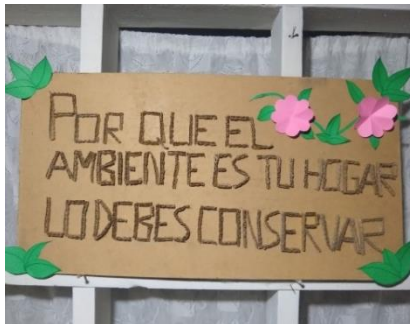 POR QUE EL
AMBIENTE ES TU HOGAR
LO DEBES CONSERVAR